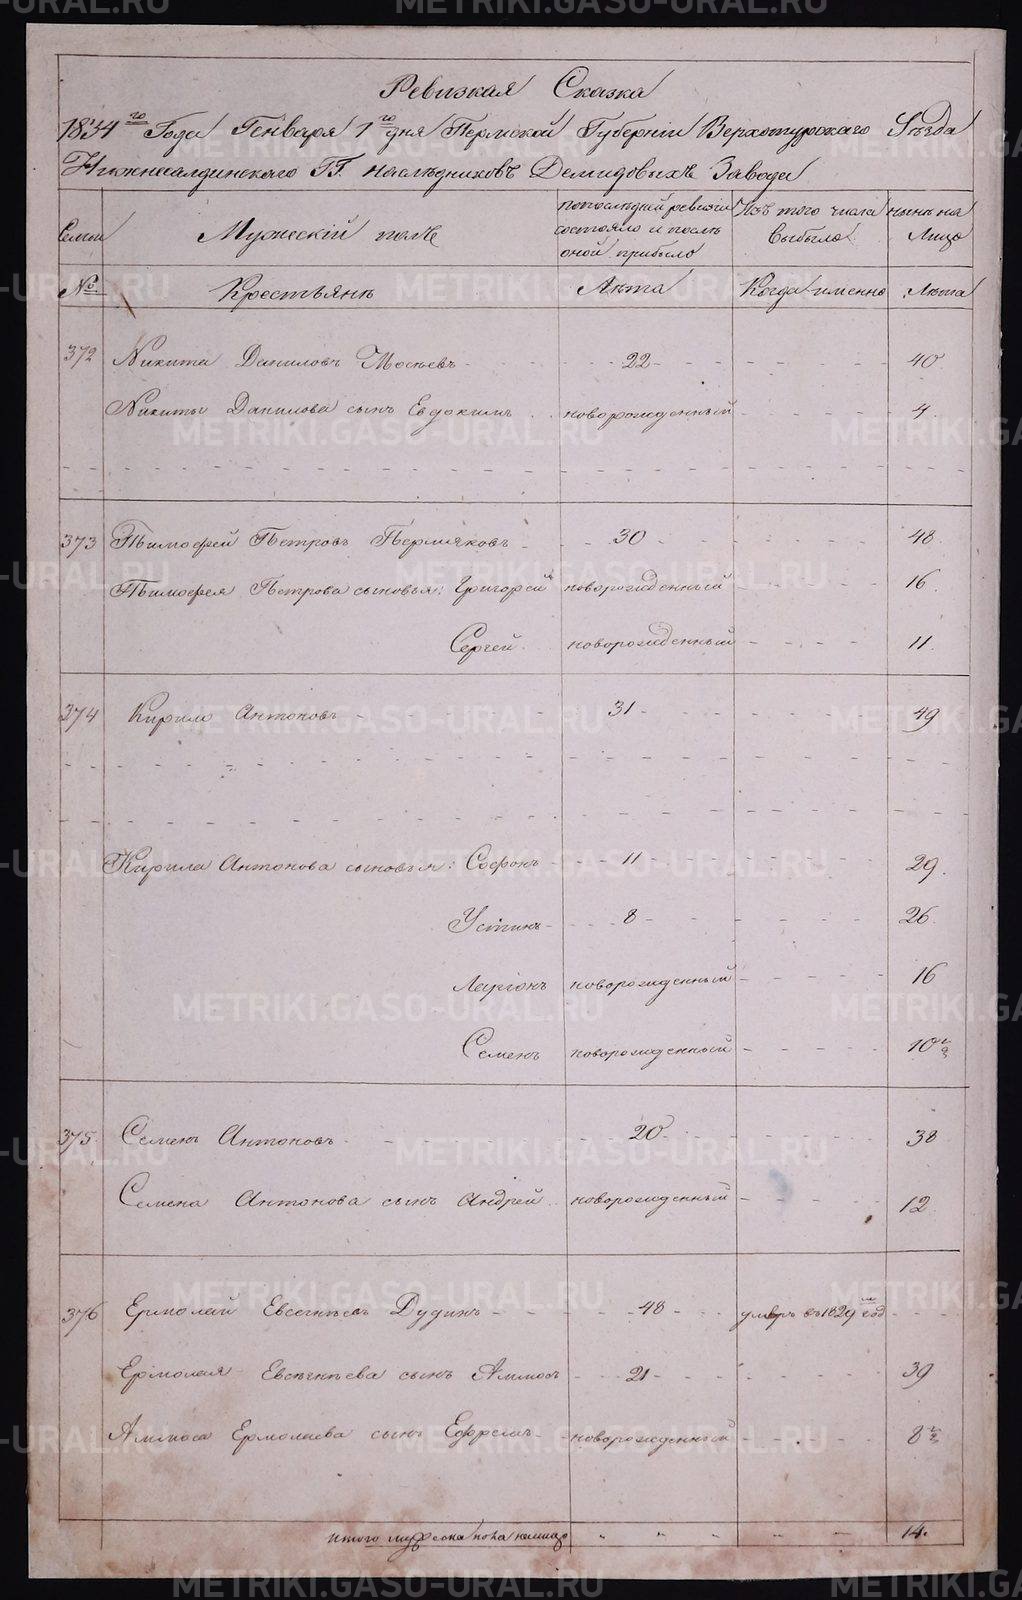 Ревизкая Сказка
1834го Года Генваря 1го дня Пермской Губернiи Верхотурскаго Уѣзда
Нижнесалдинскаго ГГ. наслѣдниковъ Демидовыхъ Завода
Семьи Мужескiй полъ попослѣдней ревизiи состояло и послѣ оной прибыло Изъ того числа выбыло нынѣ на Лицо
№ Крестьянъ Лѣта Когда именно Лѣта
372 Никита Даниловъ 22 40
Никиты Данилова сынъ Евдокимъ новорожденный 4
373 Тимофей Петровъ Пермяковъ 30 48
Тимофея Петрова сыновья: Григорей новорожденный 16
Сергей новорожденный 11
374 Кирило Антоновъ 31 49
Кирила Антонова сыновья: Софонъ 11 29
Устинъ 8 26
Ларiонъ новорожденный 16
Семенъ новорожденный 10
375 Семенъ Антоновъ 20 38
Семена Антонова сынъ Андрей новорожденный 12
376 Ермолай Евсегнѣевъ Дудинъ 48 умеръ въ 1829 год
Ермолая Евсегнѣева сынъ Аммосъ 21 39
Аммоса Ермолаева сынъ Ефремъ новорожденный 8
Итого мужеска пола налицо 14.
METRIKI.GASO-URAL.RU